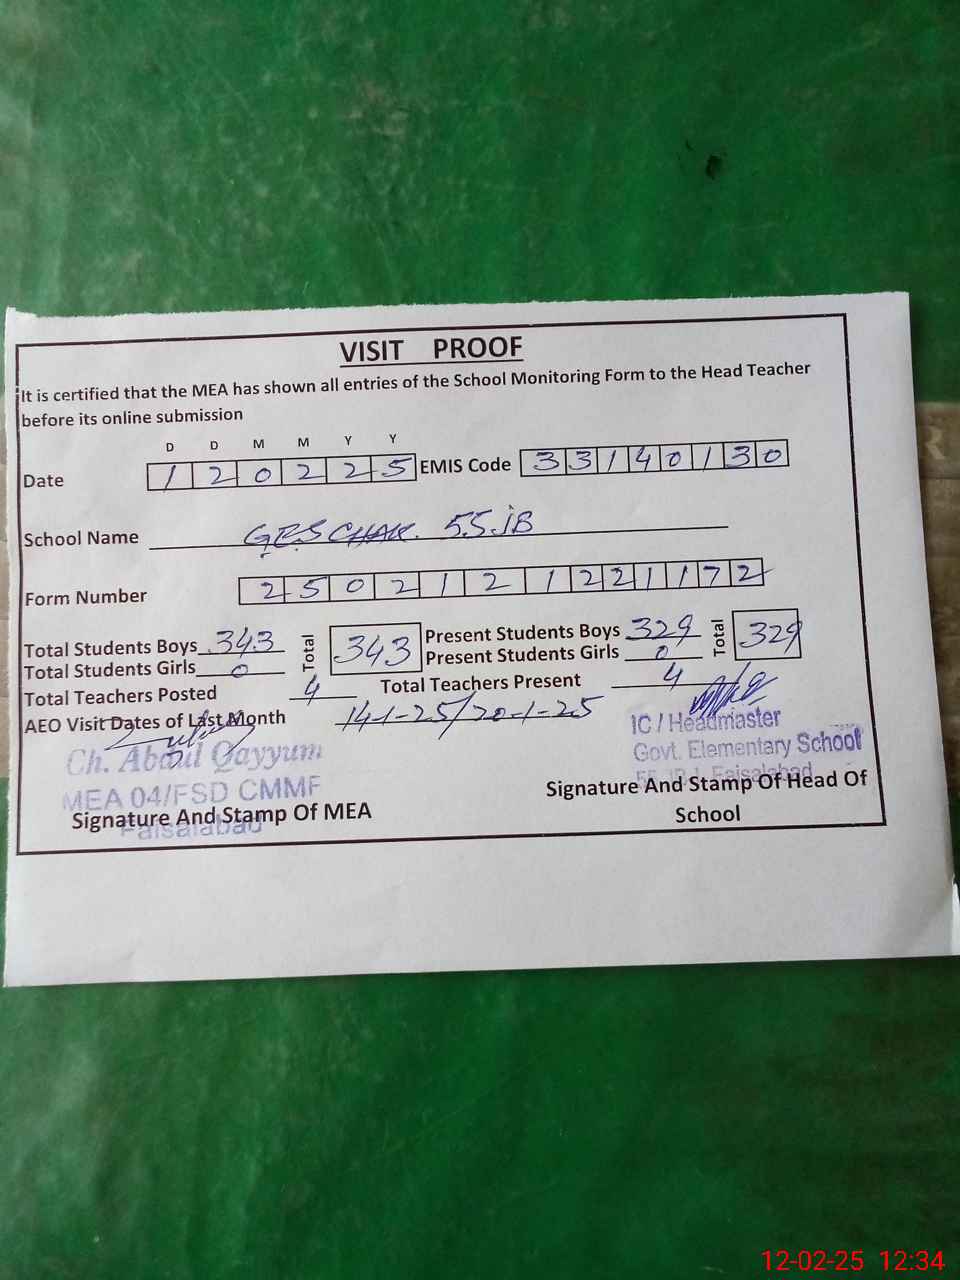 VISIT PROOF
It is certified that the MEA has shown all entries of the School Monitoring Form to the Head Teacher
before its online submission
D D M M Y Y
Date 1 2 0 2 2 5 EMIS Code 3 3 1 4 0 1 3 0
School Name GES CHAK. 55 JB
Form Number 2 5 0 2 1 2 1 2 2 1 1 7 2
Total Students Boys 343 Total 343 Present Students Boys 329 Total 329
Total Students Girls 0 Present Students Girls 0
Total Teachers Posted 4 Total Teachers Present 4
AEO Visit Dates of Last Month 14-1-25/20-1-25
IC / Headmaster
Ch. Abdul Qayyum Govt. Elementary School
MEA 04/FSD CMMF 55 JB Faisalabad
Signature And Stamp Of MEA Signature And Stamp Of Head Of
Faisalabad School
12-02-25 12:34